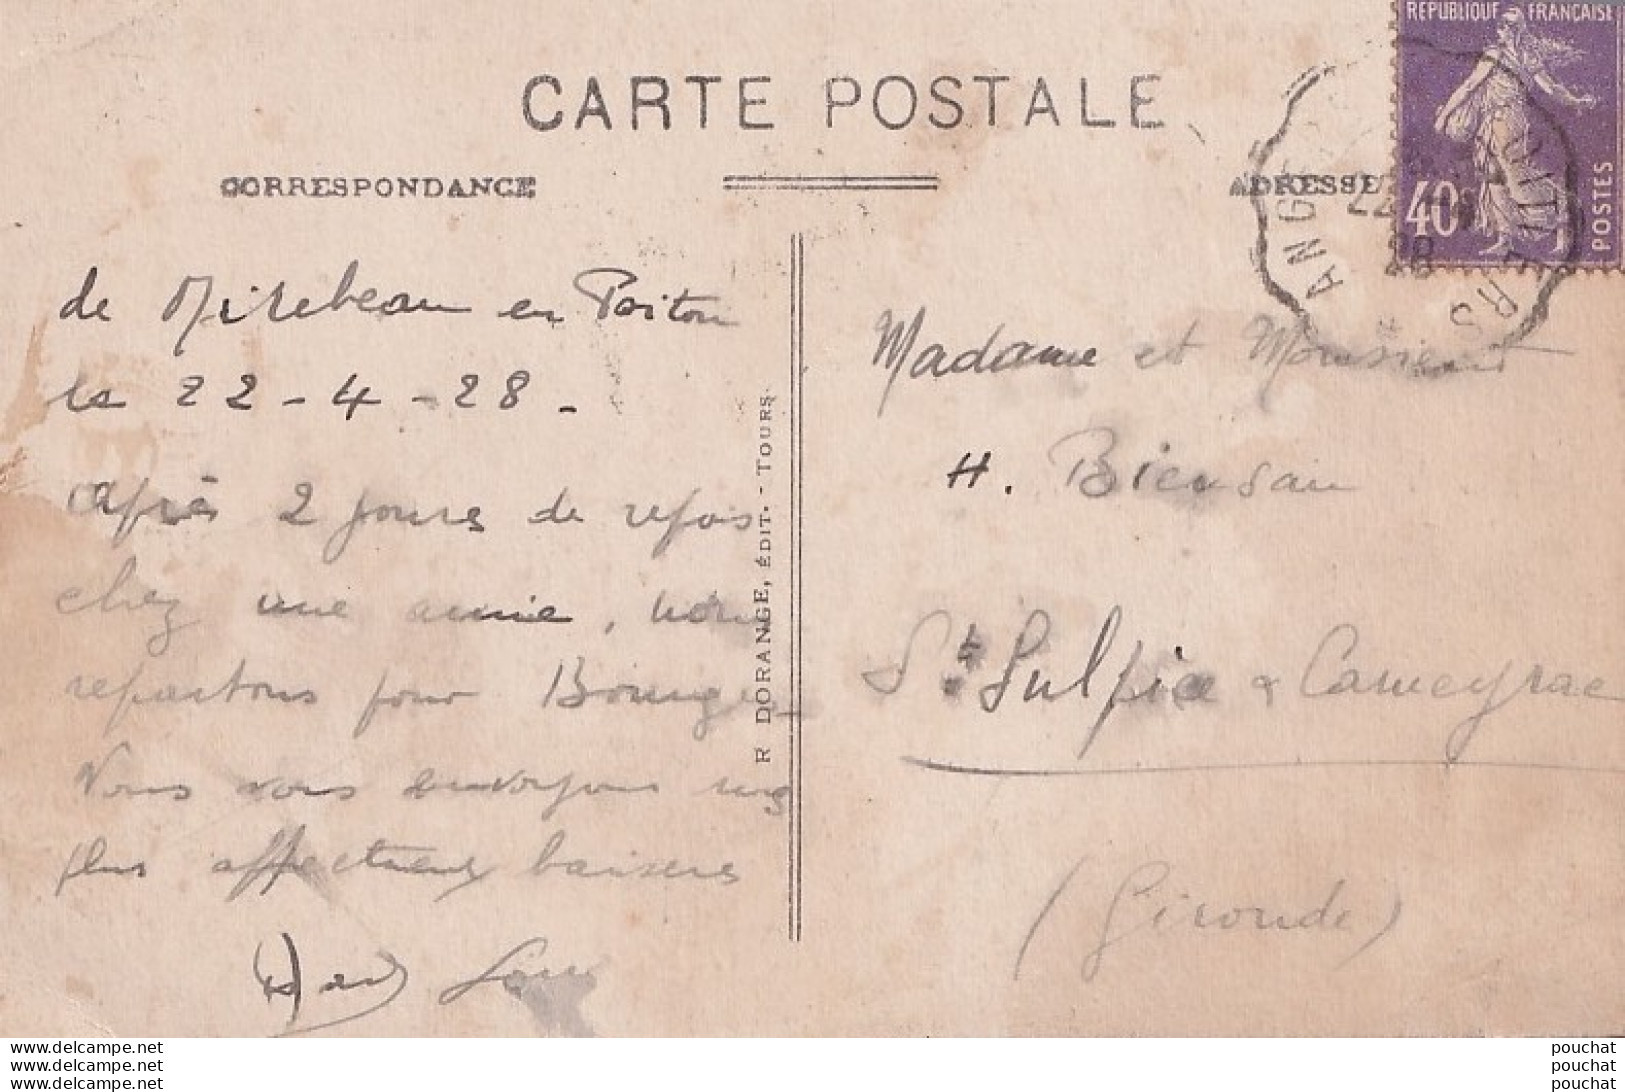 CARTE POSTALE
CORRESPONDANCE
ADRESSE
REPUBLIQUE FRANCAISE
40c
POSTES
ANGERS POITIERS
22
28
de Mirebeau en Poitou
le 22-4-28.
Après 2 jours de repos
chez une amie, nous
repartons pour Bourges
Nous vous envoyons nos
plus affectueux baisers
R DORANGE, ÉDIT. - TOURS
Madame et Monsieur
H. Biensan
St Sulpice & Cameyrac
(Gironde)
www.delcampe.net
www.delcampe.net
www.delcampe.net
pouchat
pouchat
pouchat